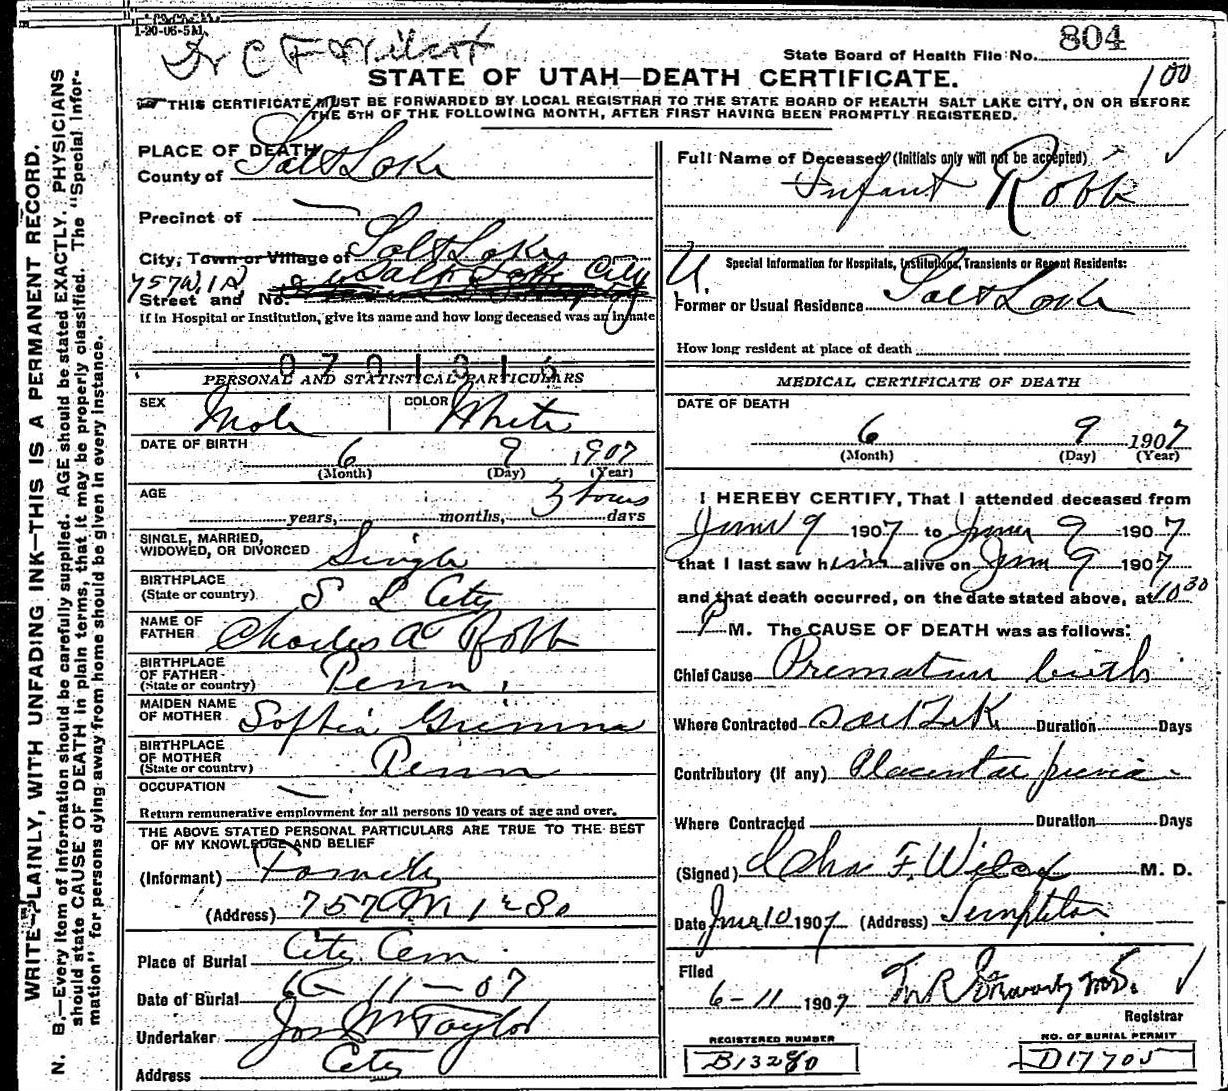 1-20-06-5M
Dr C F Wilcox
State Board of Health File No. 804
100
STATE OF UTAH—DEATH CERTIFICATE.
THIS CERTIFICATE MUST BE FORWARDED BY LOCAL REGISTRAR TO THE STATE BOARD OF HEALTH SALT LAKE CITY, ON OR BEFORE
THE 5TH OF THE FOLLOWING MONTH, AFTER FIRST HAVING BEEN PROMPTLY REGISTERED.
WRITE PLAINLY, WITH UNFADING INK—THIS IS A PERMANENT RECORD.
N. B.—Every item of information should be carefully supplied. AGE should be stated EXACTLY. PHYSICIANS
should state CAUSE OF DEATH in plain terms, that it may be properly classified. The "Special Infor-
mation" for persons dying away from home should be given in every instance.
PLACE OF DEATH
County of Salt Lake
Precinct of —
City, Town or Village of Salt Lake
757 W. 1 S. Salt Lake City
Street and No.
if in Hospital or Institution, give its name and how long deceased was an inmate
0701316
PERSONAL AND STATISTICAL PARTICULARS
SEX Male COLOR White
DATE OF BIRTH 6 9 1907
(Month) (Day) (Year)
AGE 3 hours
years, months, days
SINGLE, MARRIED,
WIDOWED, OR DIVORCED Single
BIRTHPLACE
(State or country) S L City
NAME OF
FATHER Charles A Robb
BIRTHPLACE
OF FATHER
(State or country) Penn
MAIDEN NAME
OF MOTHER Sophia Grimm
BIRTHPLACE
OF MOTHER
(State or country) Penn
OCCUPATION —
Return remunerative employment for all persons 10 years of age and over.
THE ABOVE STATED PERSONAL PARTICULARS ARE TRUE TO THE BEST
OF MY KNOWLEDGE AND BELIEF
(Informant) Family
(Address) 757 W 1st So
Place of Burial City Cem
Date of Burial 6-11-07
Undertaker Jos Wm Taylor
Address City
Full Name of Deceased (Initials only will not be accepted)
Infant Robb
U.
Special Information for Hospitals, Institutions, Transients or Recent Residents:
Former or Usual Residence Salt Lake
How long resident at place of death
MEDICAL CERTIFICATE OF DEATH
DATE OF DEATH
6 9 1907
(Month) (Day) (Year)
I HEREBY CERTIFY, That I attended deceased from
June 9 1907 to June 9 1907
that I last saw him alive on June 9 1907
and that death occurred, on the date stated above, at 10 30
P M. The CAUSE OF DEATH was as follows:
Chief Cause Premature birth
Where Contracted Salt Lk Duration Days
Contributory (if any) Placentae previa
Where Contracted Duration Days
(Signed) Chas F. Wilcox M. D.
Date June 10 1907 (Address) Templeton
Filed
6-11 1907
Registrar
REGISTERED NUMBER
B13280
NO. OF BURIAL PERMIT
D17705